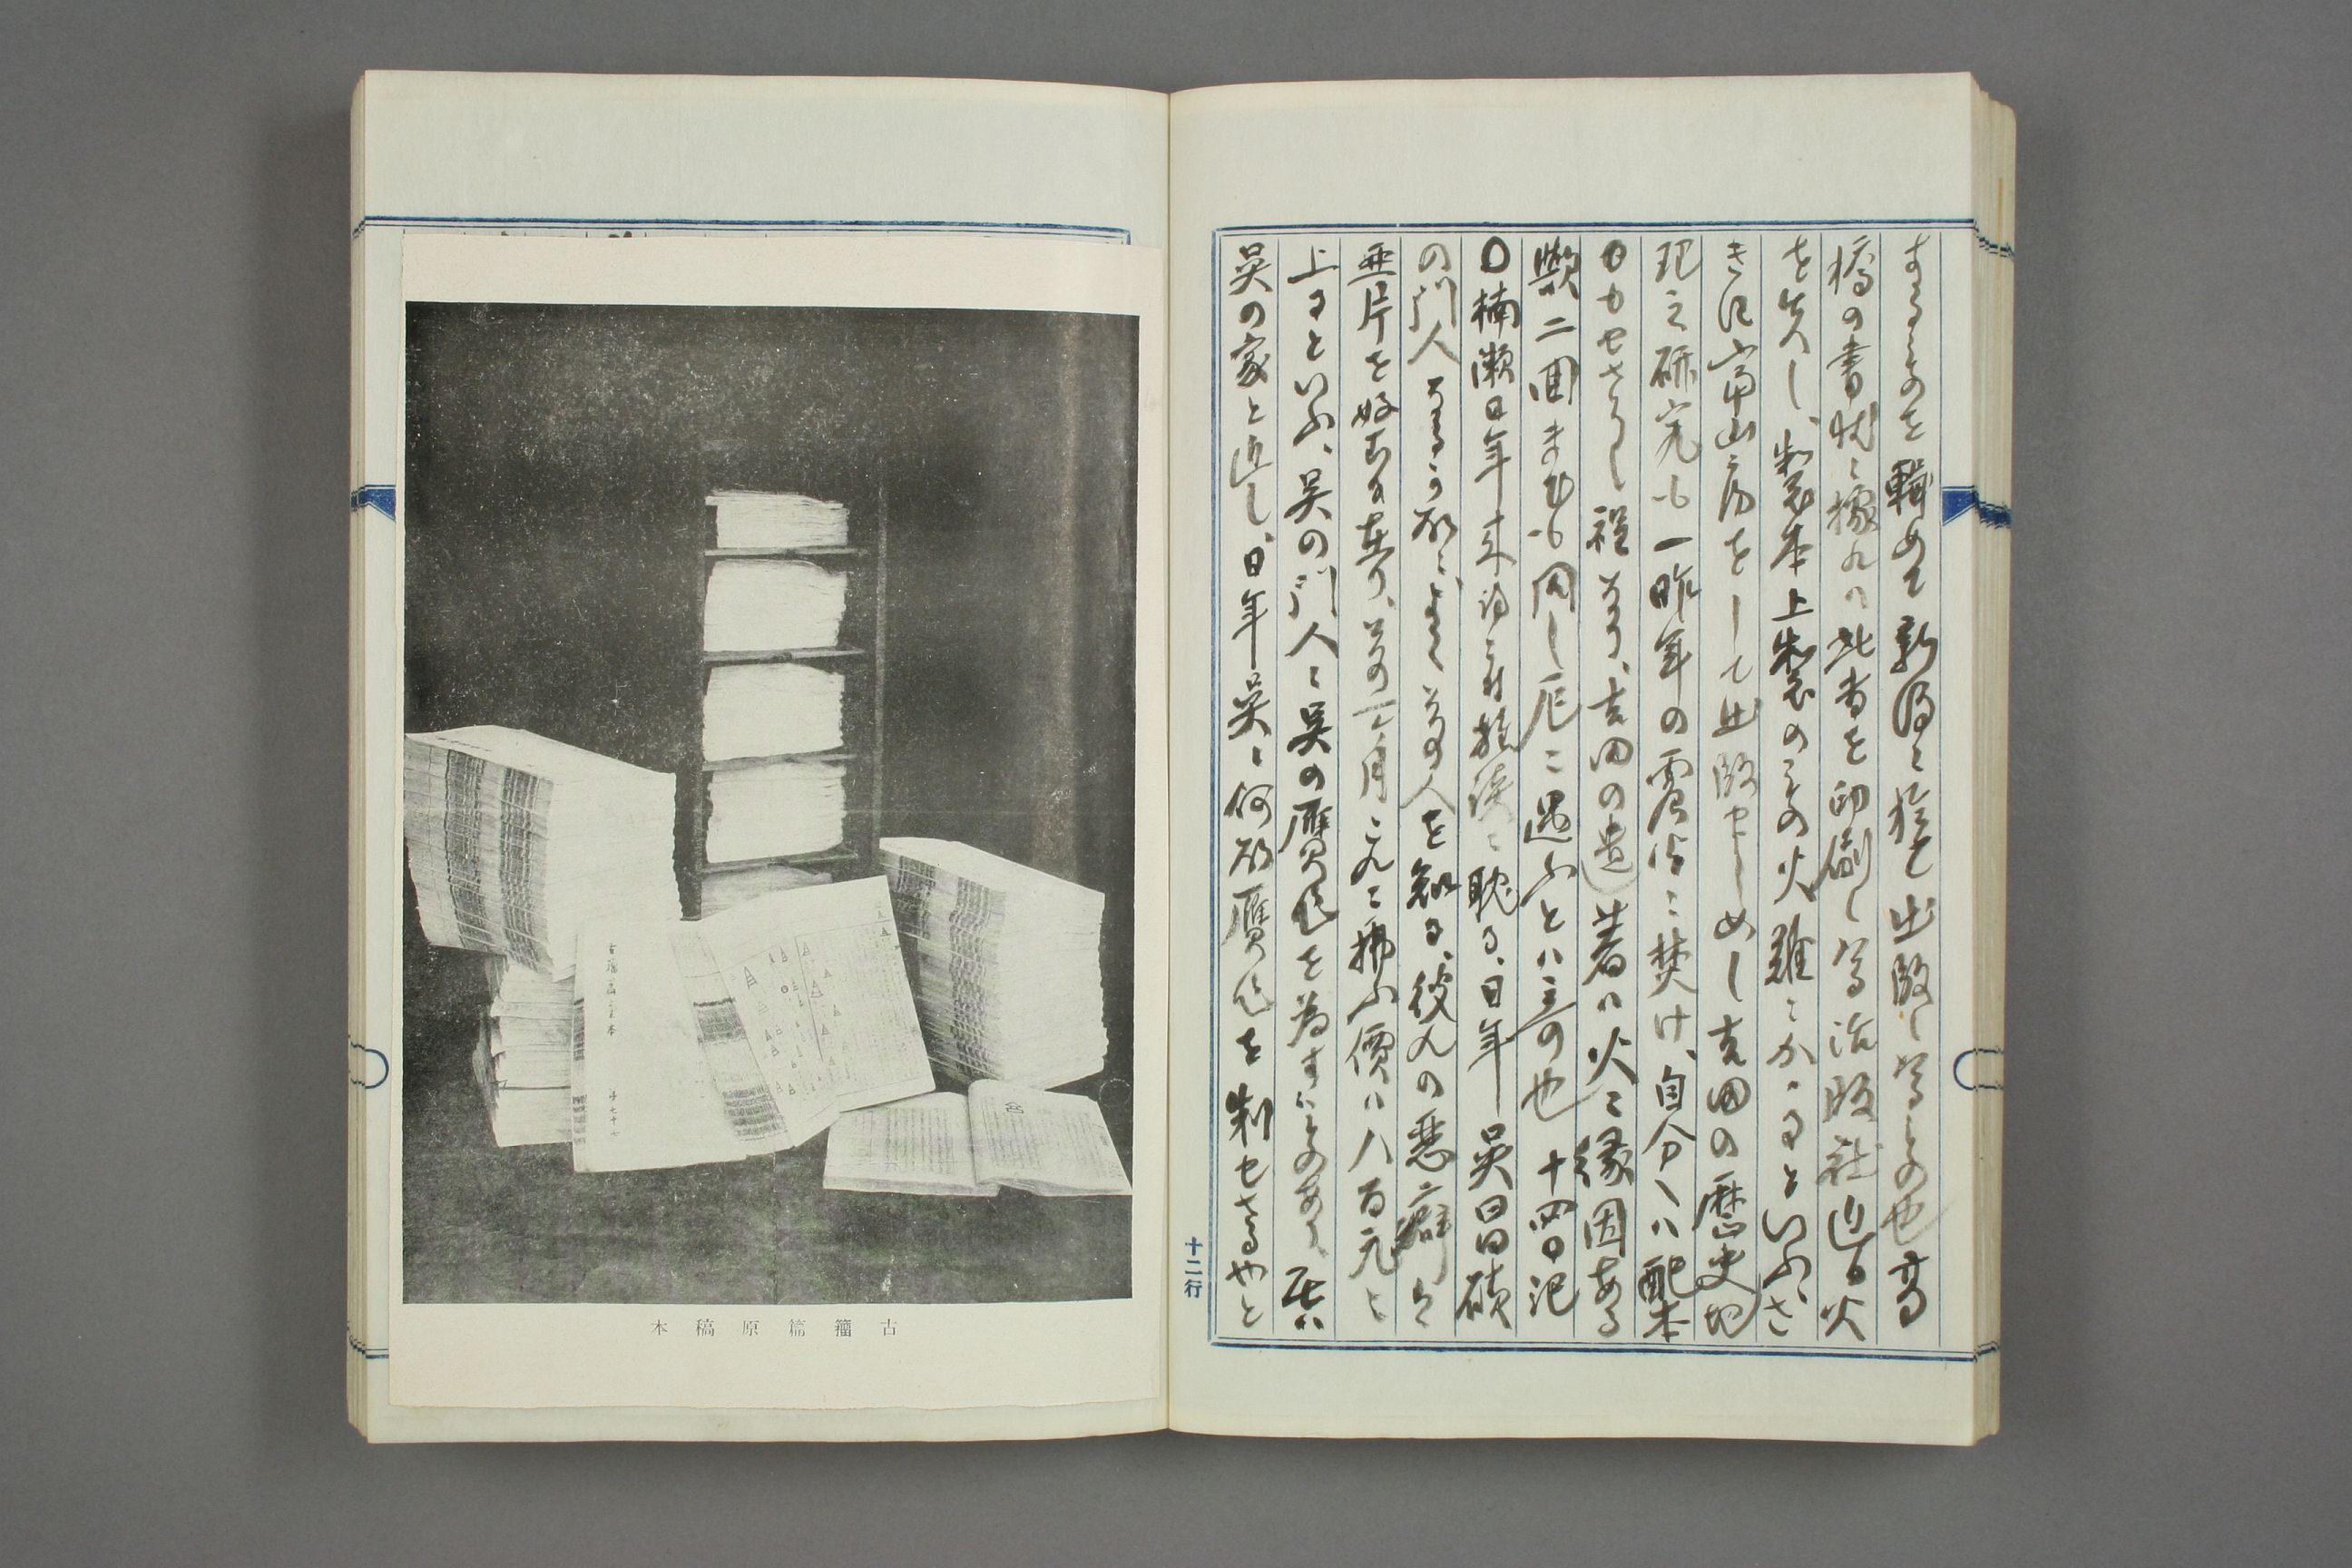 するものを輯めて新潟に於て出版したるもの也高
橋の書状に據れハ此書を印刷したる活版社近日火
を失し、製本上製のもの火難にかゝるといふ、さ
きに冨山房をして出版せしめし吉田の歴史地
理之研究も一昨年の震災に焚け、自分へハ配本
もせさりし程なり、吉田の遺著ハ火に縁因ある
歟二回までも同し厄に遇ふとハ三の也 十四日記
〇楠瀬日年来訪
に耽る、日年呉昌碩
の門人なるか故によくその人を知る、彼れの悪癖は
亜片を好むに在り、その一ヶ月これに拂ふ價ハ八百元に
上るといふ、呉の門人に呉の贋作を為すものあり、居ハ
呉の家に近し、日年呉に何故贋作を制せさるやと
十二行
古籀篇原稿本